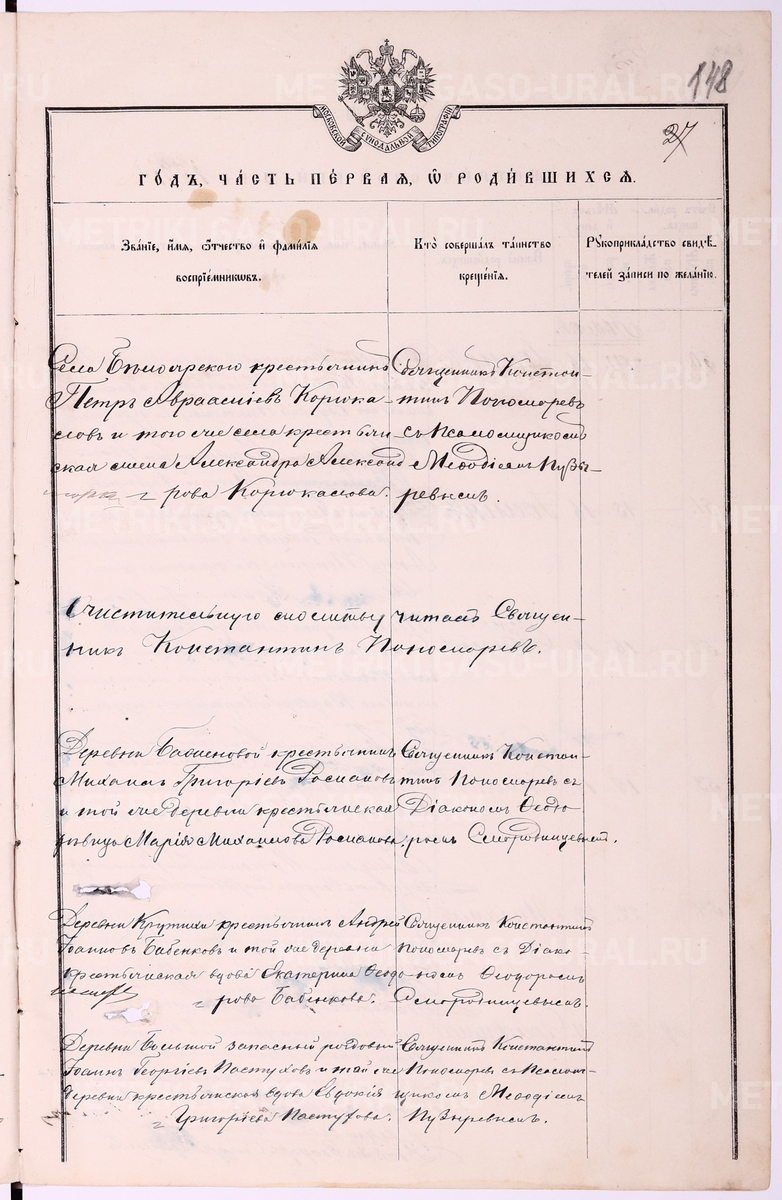 148
27
МОСКОВСКОЙ СѴНОДАЛЬНОЙ ТИПОГРАФІИ
ГО́ДЪ, ЧА́СТЬ ПЕ́РВАЯ, Ѿ РОДИ́ВШИХСЯ.
Зва́нїе, и҆́мя, ѻ҆́тчество и҆ фами́лїя воспрїе́мникѡвъ.
Кто̀ соверша́лъ та́инство креще́нїя.
Рꙋкоприкла́дство свидѣ́телей за́писи по жела́нїю.
Села Бѣлоярскаго крестьянинъ
Петръ Аврааміевъ Корюка-
ловъ и того же села крестьян-
ская жена Александра Александ
рова Корюкалова.
Священникъ Констан-
тинъ Пономаревъ
съ Псаломщикомъ
Меѳодіемъ Пузы-
ревымъ.
Очистительную молитву читалъ Священ-
никъ Константинъ Пономаревъ.
Деревни Бабиновой крестьянинъ
Михаилъ Григоріевъ Росмановъ
и той же деревни крестьянская
дѣвица Марія Михаилова Росманова.
Священникъ Констан-
тинъ Пономаревъ съ
Діакономъ Ѳеодо
ромъ Смородинцевымъ.
Деревни Крутихи крестьянинъ Андрей
Іоанновъ Бабенковъ и той же деревни
крестьянская вдова Екатерина Ѳеодо-
рова Бабенкова.
Священникъ Константинъ
Пономаревъ съ Діако-
номъ Ѳеодоромъ
Смородинцевымъ.
Деревни Большой запасный рядовый
Іоаннъ Георгіевъ Пастуховъ и той же
деревни крестьянская вдова Евдокія
Григоріева Пастухова.
Священникъ Константинъ
Пономаревъ съ Псалом-
щикомъ Меѳодіемъ
Пузыревымъ.